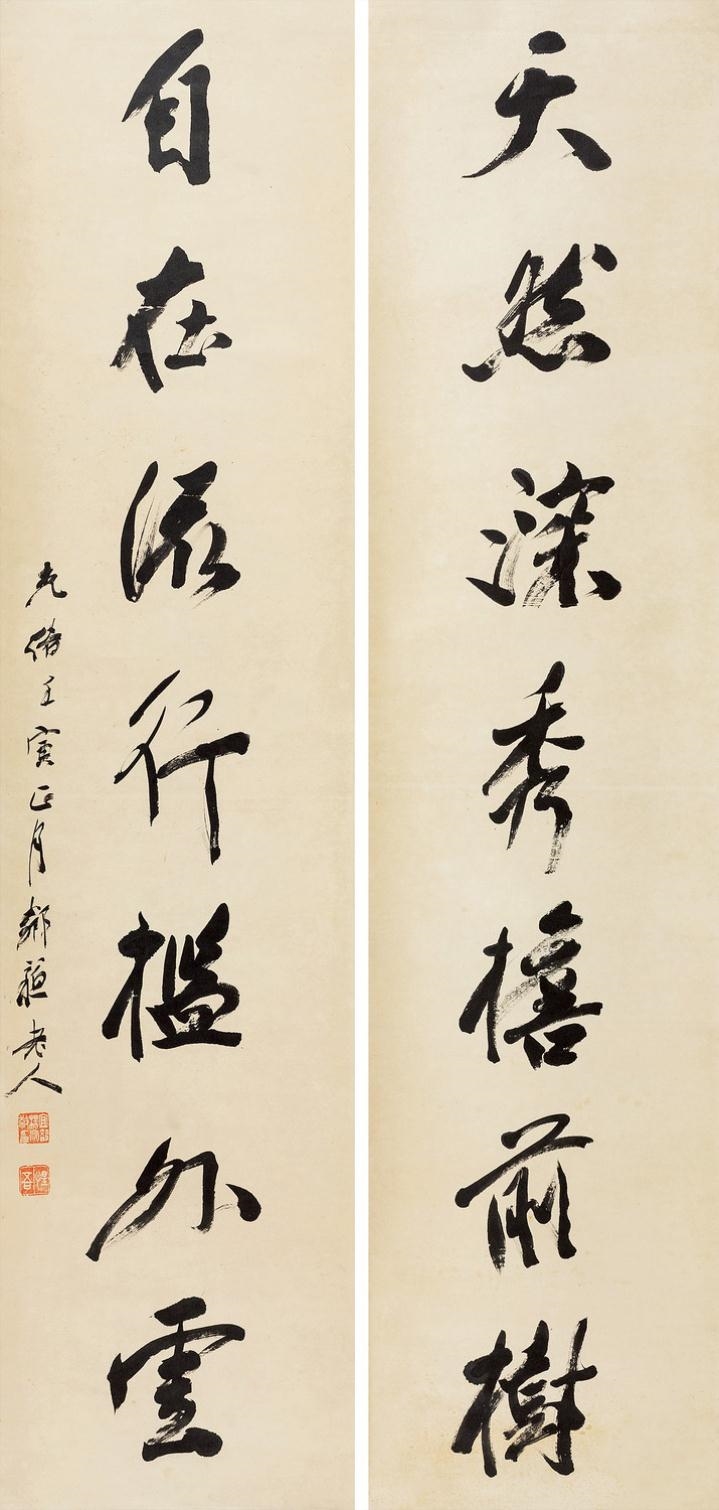 天然深秀檐前樹
自在流行檻外雲
光緒壬寅正月鄰蘇老人